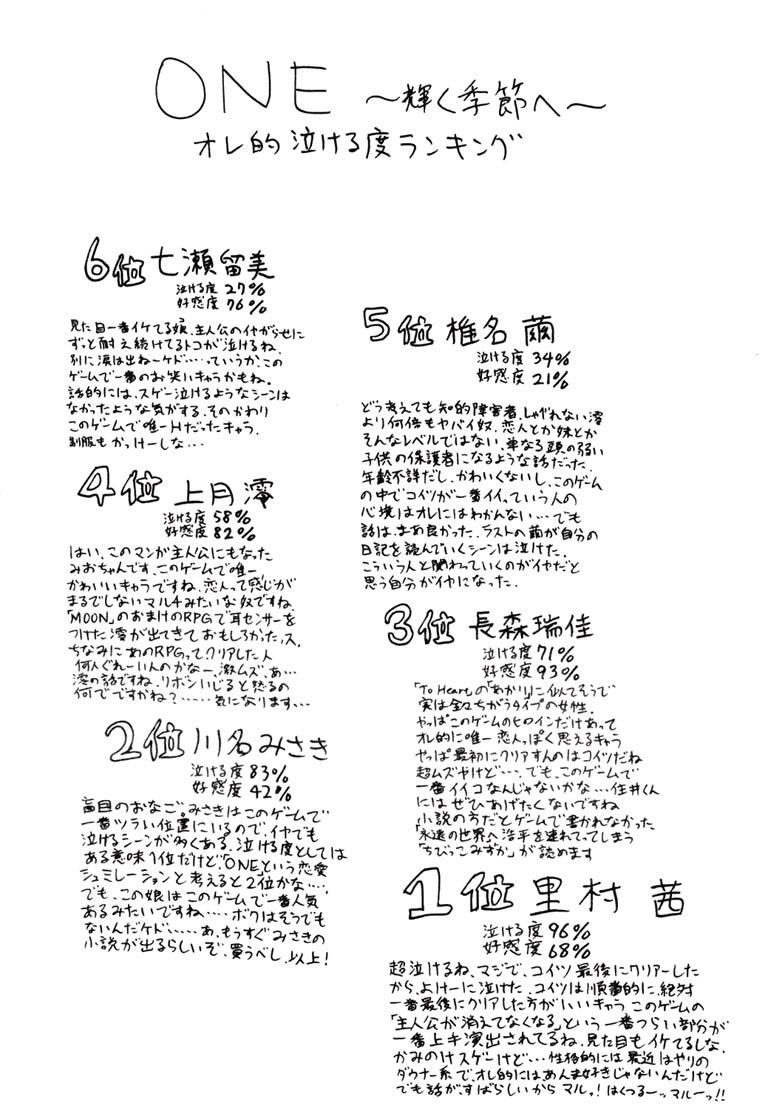 ONE ~輝く季節へ~
オレ的泣ける度ランキング
6位 七瀬留美
泣ける度 27%
好感度 76%
見た目一番イケてる娘、主人公のイヤがらせに
ずっと耐え続けてるトコが泣けるね。
別に涙は出ねーケド……っていうか、この
ゲームで一番のお笑いキャラかもね。
話的には、スゲー泣けるようなシーンは
なかったような気がする。そのかわり
このゲームで唯一Hだったキャラ。
制服もかっけーしな…
5位 椎名 繭
泣ける度 34%
好感度 21%
どう考えても知的障害者、しゃべれない澪
より何倍もヤバイ奴。恋人とか妹とか
そんなレベルではない、単なる頭の弱い
子供の保護者になるような話だった。
年齢不詳だし、かわいくないし、このゲーム
の中でコイツが一番イイっていう人の
心境はオレにはわかんない…でも
話は、まあ良かった。ラストの繭が自分の
日記を読んでいくシーンは泣けた。
こういう人と関わっていくのがイヤだと
思う自分がイヤになった。
4位 上月澪
泣ける度 58%
好感度 82%
はい、このマンが主人公にもなった
みおちゃんです。このゲームで唯一
かわいいキャラですね。恋人って感じが
まるでしないマルチみたいな奴ですね。
「MOON」のおまけのRPGで耳センサーを
つけた澪が出てきておもしろかったっス。
ちなみにあのRPGってクリアした人
何人ぐれーいんのかなー、激ムズ。あ…
澪の話ですね。リボンいじると怒るの
何でですかね?……気になります…
3位 長森瑞佳
泣ける度 71%
好感度 93%
「To Heart」の「あかり」に似てそうで
実は全々ちがうタイプの女性。
やっぱこのゲームのヒロインだけあって
オレ的に唯一恋人っぽく思えるキャラ
やっぱ最初にクリアすんのはコイツだね
超ムズやけど…。でも、このゲームで
一番イイコなんじゃないかな…住井くん
にはぜひあげたくないですね
小説の方だとゲームで書かれなかった
「永遠の世界へ浩平を連れてってしまう
「ちびっこみずか」が読めます
2位 川名みさき
泣ける度 83%
好感度 42%
盲目のおなご。みさきはこのゲームで
一番ツラい位置にいるので、イヤでも
泣けるシーンが多くある。泣ける度としては
ある意味1位だけど、"ONE"という恋愛
シュミレーションと考えると2位かな…。
でも、この娘はこのゲームで一番人気
あるみたいですね…。ボクはそうでも
ないんだケド……あ、もうすぐみさきの
小説が出るらしいぞ、買うべし、以上!
1位 里村 茜
泣ける度 96%
好感度 68%
超泣けるね、マジで、コイツ最後にクリアーした
から、よけーに泣けた、コイツは順番的に、絶対
一番最後にクリアした方がいいキャラ このゲームの
「主人公が消えてなくなる」という一番つらい部分が
一番上手演出されてるね。見た目もイケてるしな。
かみのけスゲーけど…性格的には最近はやりの
ダウナー系で、オレ的にはあんま好きじゃないんだけど
でも話が、すばらしいからマルっ!はくつるーッマルーっ!!